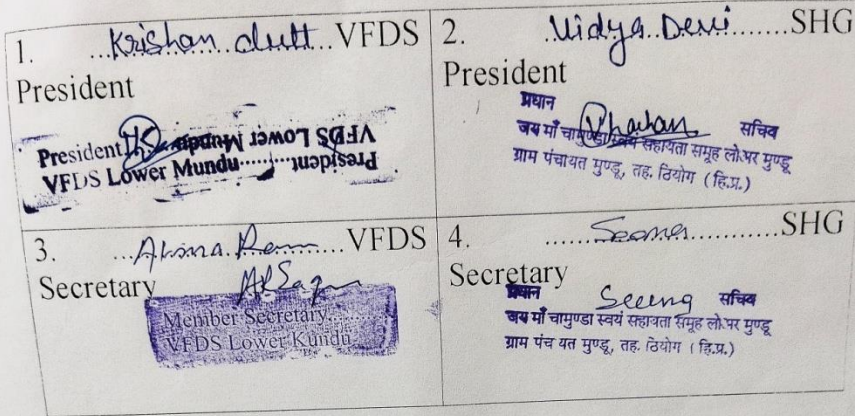 1. ...Krishan dutt...VFDS
President
President
VFDS Lower Mundu
President
VFDS Lower Mundu
2. .Vidya..Devi......SHG
President
प्रधान सचिव
जय माँ चामुण्डा स्वयं सहायता समूह लोअर मुण्डू
ग्राम पंचायत मुण्डू, तह. ठियोग (हि.प्र.)
3. ...Ram....VFDS
Secretary
Member Secretary
VFDS Lower Kundu
4. ......Seema............SHG
Secretary
प्रधान सचिव
जय माँ चामुण्डा स्वयं सहायता समूह लोअर मुण्डू
ग्राम पंचायत मुण्डू, तह. ठियोग (हि.प्र.)